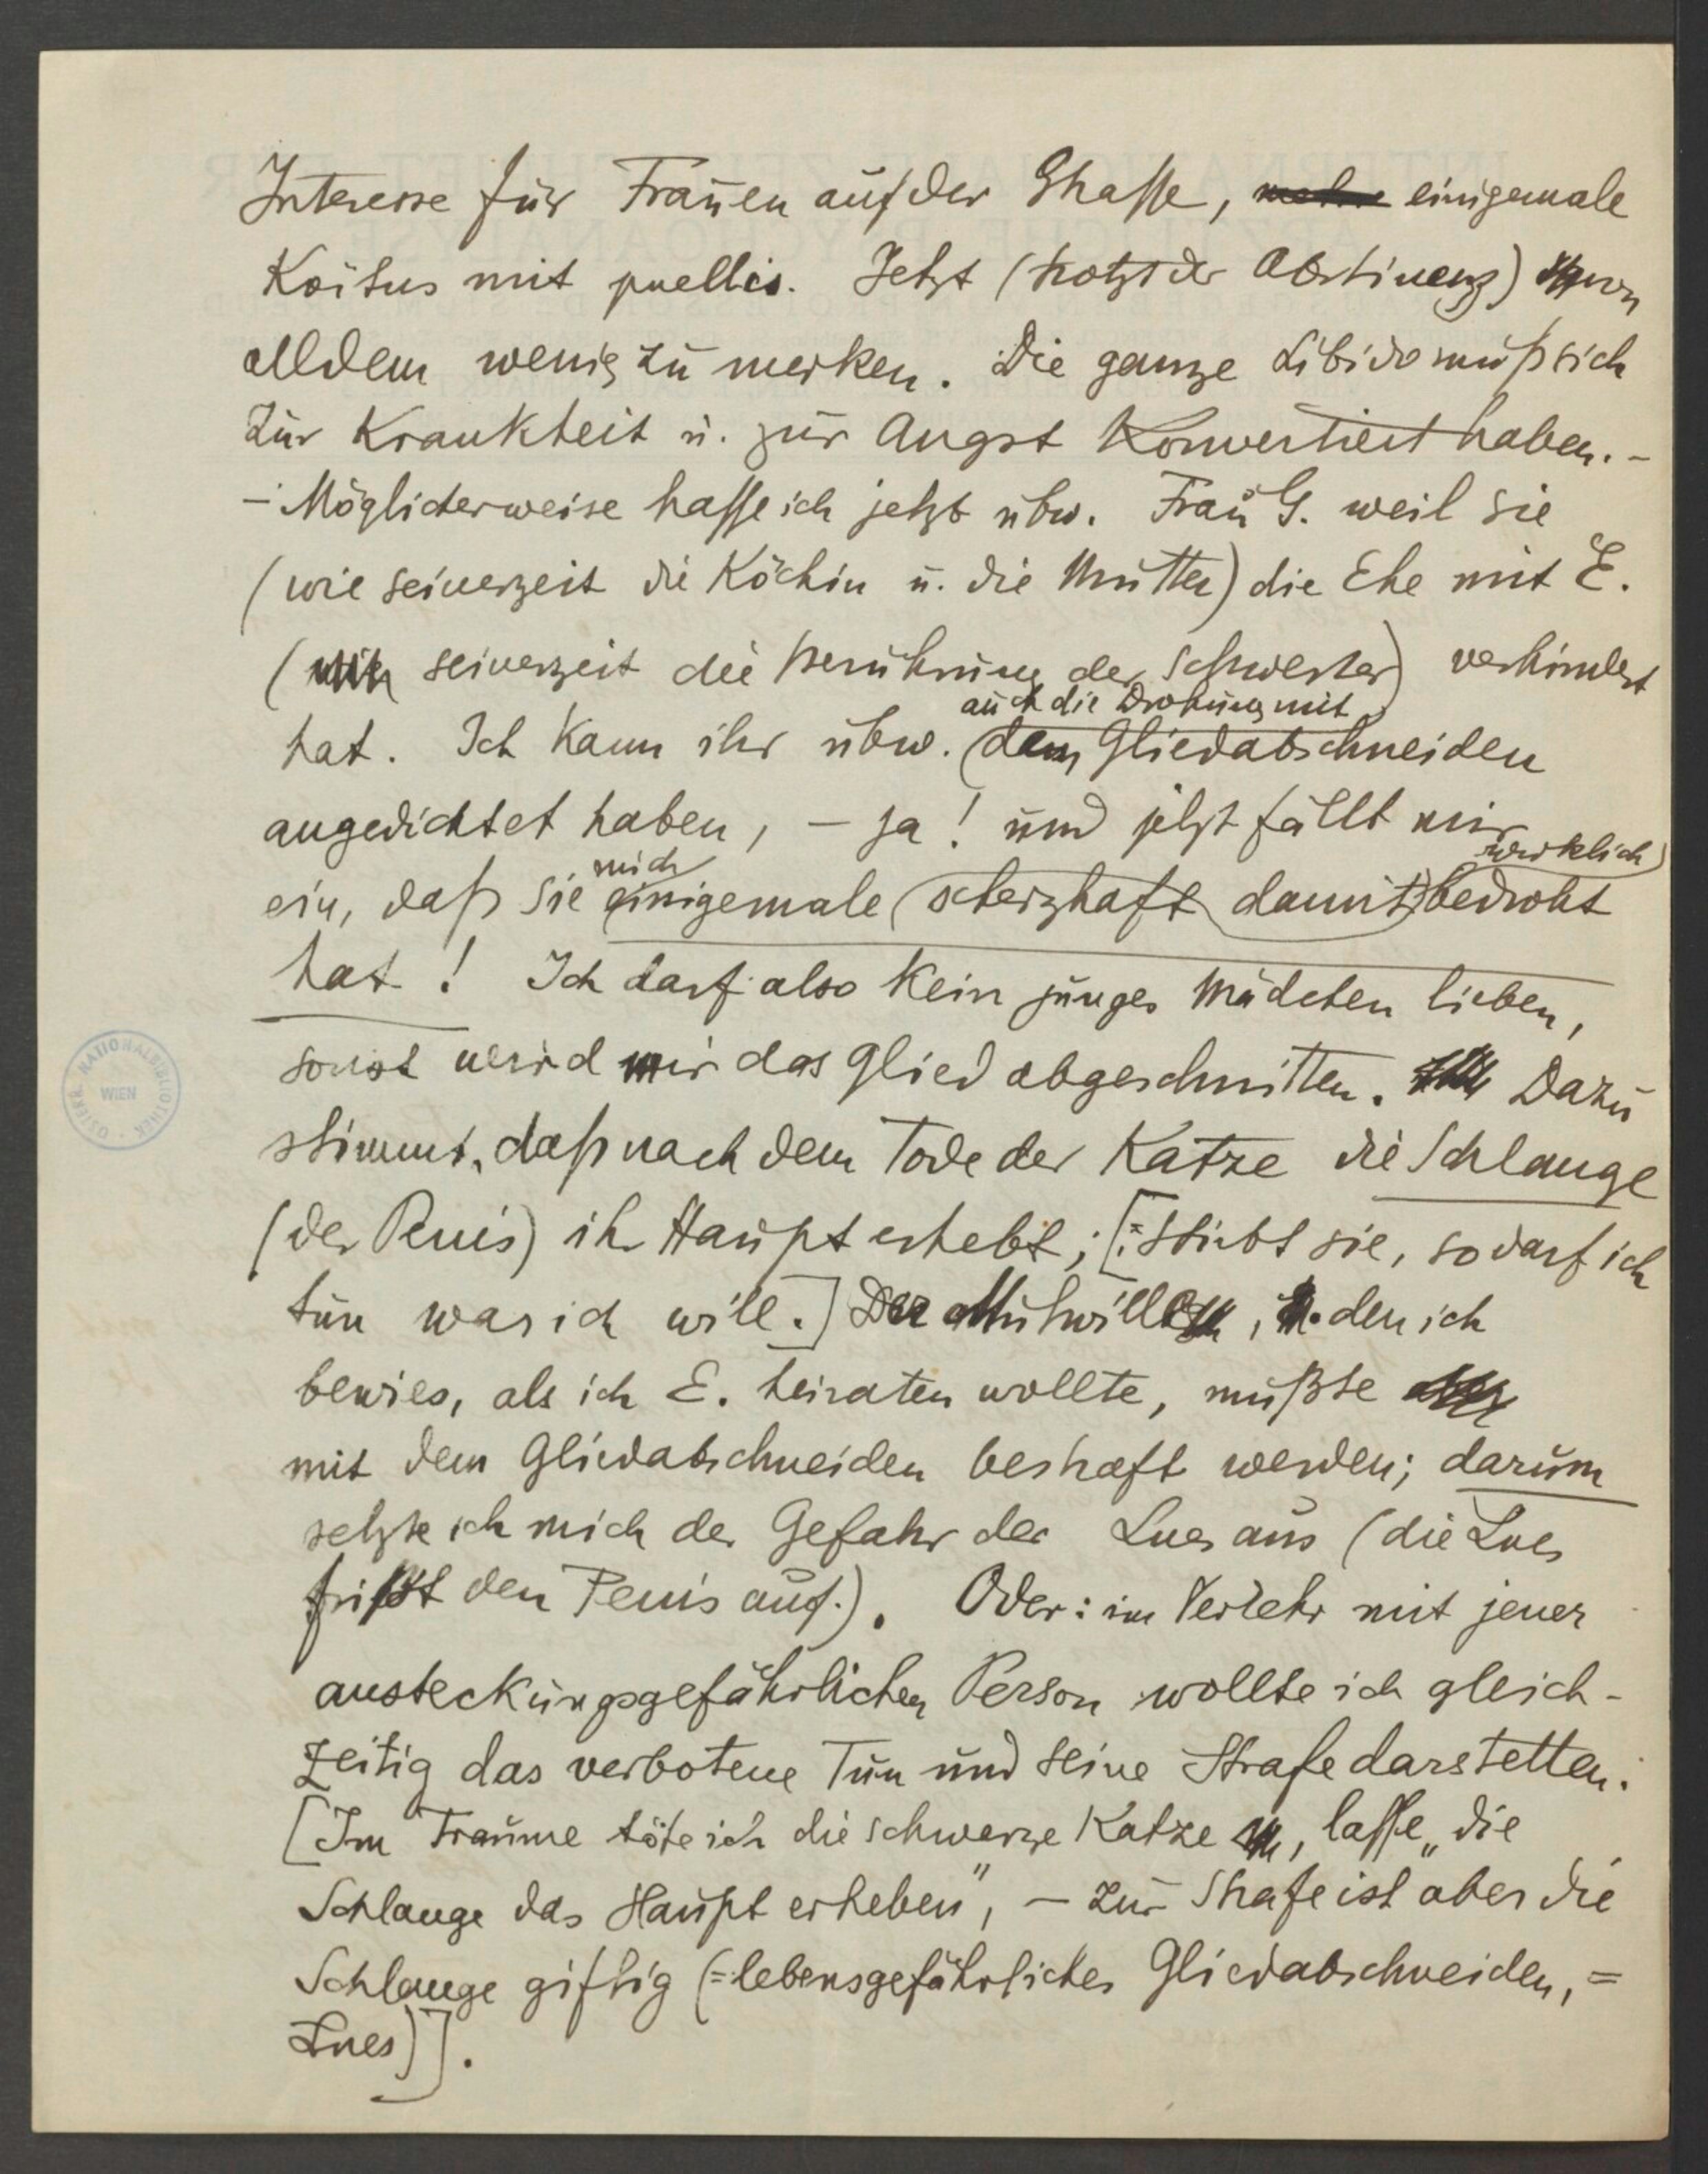 Interesse für Frauen auf der Straße, einigemale
Koitus mit puellis. Jetzt (trotz der Abstinenz) von
alldem wenig zu merken. Die ganze Libido muß sich
zur Krankheit u. zur Angst konvertiert haben. -
- Möglicherweise hasse ich jetzt ubw. Frau G. weil sie
(wie seinerzeit die Köchin u. die Mutter) die Ehe mit E.
(wie seinerzeit die Berührung der Schwester) verhindert
auch die Drohung mit
hat. Ich kann ihr ubw. (dem Gliedabschneiden
angedichtet haben, - ja! und jetzt fällt mir
wirklich)
mich
ein, daß sie einigemale (scherzhaft damit) bedroht
hat! Ich darf also kein junges Mädchen lieben,
sonst wird mir das Glied abgeschnitten. Dazu
stimmt, daß nach dem Tode der Katze die Schlange
(der Penis) ihr Haupt erhebt; [: Stirbt sie, so darf ich
tun was ich will.] Der Mutwille, den ich
bewies, als ich E. heiraten wollte, mußte
mit dem Gliedabschneiden bestraft werden; darum
setzte ich mich der Gefahr der Lues aus (die Lues
frißt den Penis auf.). Oder: im Verkehr mit jener
ansteckungsgefährlichen Person wollte ich gleich-
zeitig das verbotene Tun und seine Strafe darstellen.
[Im Traume töte ich die schwarze Katze, lasse „die
Schlange das Haupt erheben", - zur Strafe ist aber die
Schlange giftig (= lebensgefährliches Gliedabschneiden, =
Lues)].
ÖSTERR. NATIONALBIBLIOTHEK
WIEN